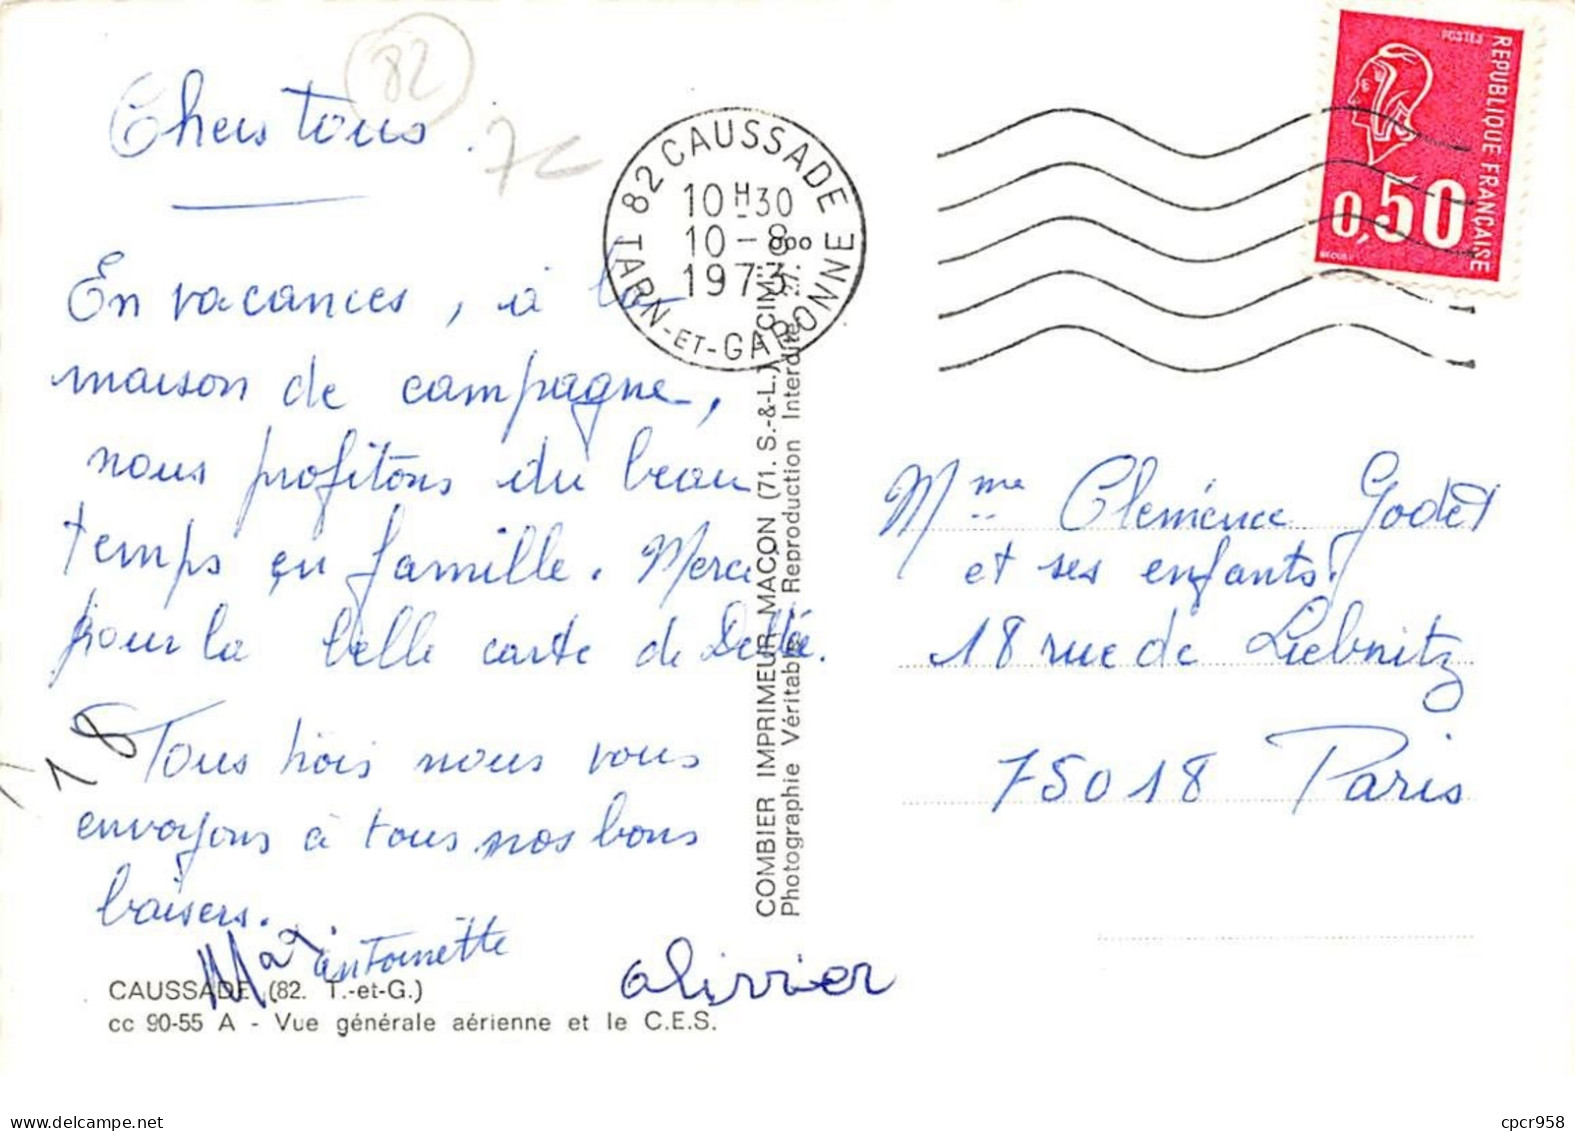 82
Chers tous.
7€
En vacances, à la
maison de campagne,
nous profitons du beau
temps en famille. Merci
pour la belle carte de
18
Tous trois nous vous
envoyons à tous nos bons
baisers.
Max
Antoinette
olivier
CAUSSADE (82. T.-et-G.)
cc 90-55 A - Vue générale aérienne et le C.E.S.
82 CAUSSADE
10 H 30
10 - 8
1973
TARN-ET-GARONNE
COMBIER IMPRIMEUR MACON (71. S.-&-L.) CIM
Photographie Véritable - Reproduction Interdite
POSTES
REPUBLIQUE FRANÇAISE
0,50
Mme Clémence Godet
et ses enfants.
18 rue de Liebnitz
75018 Paris
cpcr958